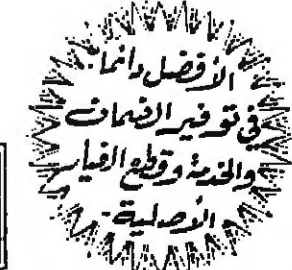 الأفضل دائما.
في توفير الضمان
والخدمة وقطع الغيار
الأصلية.